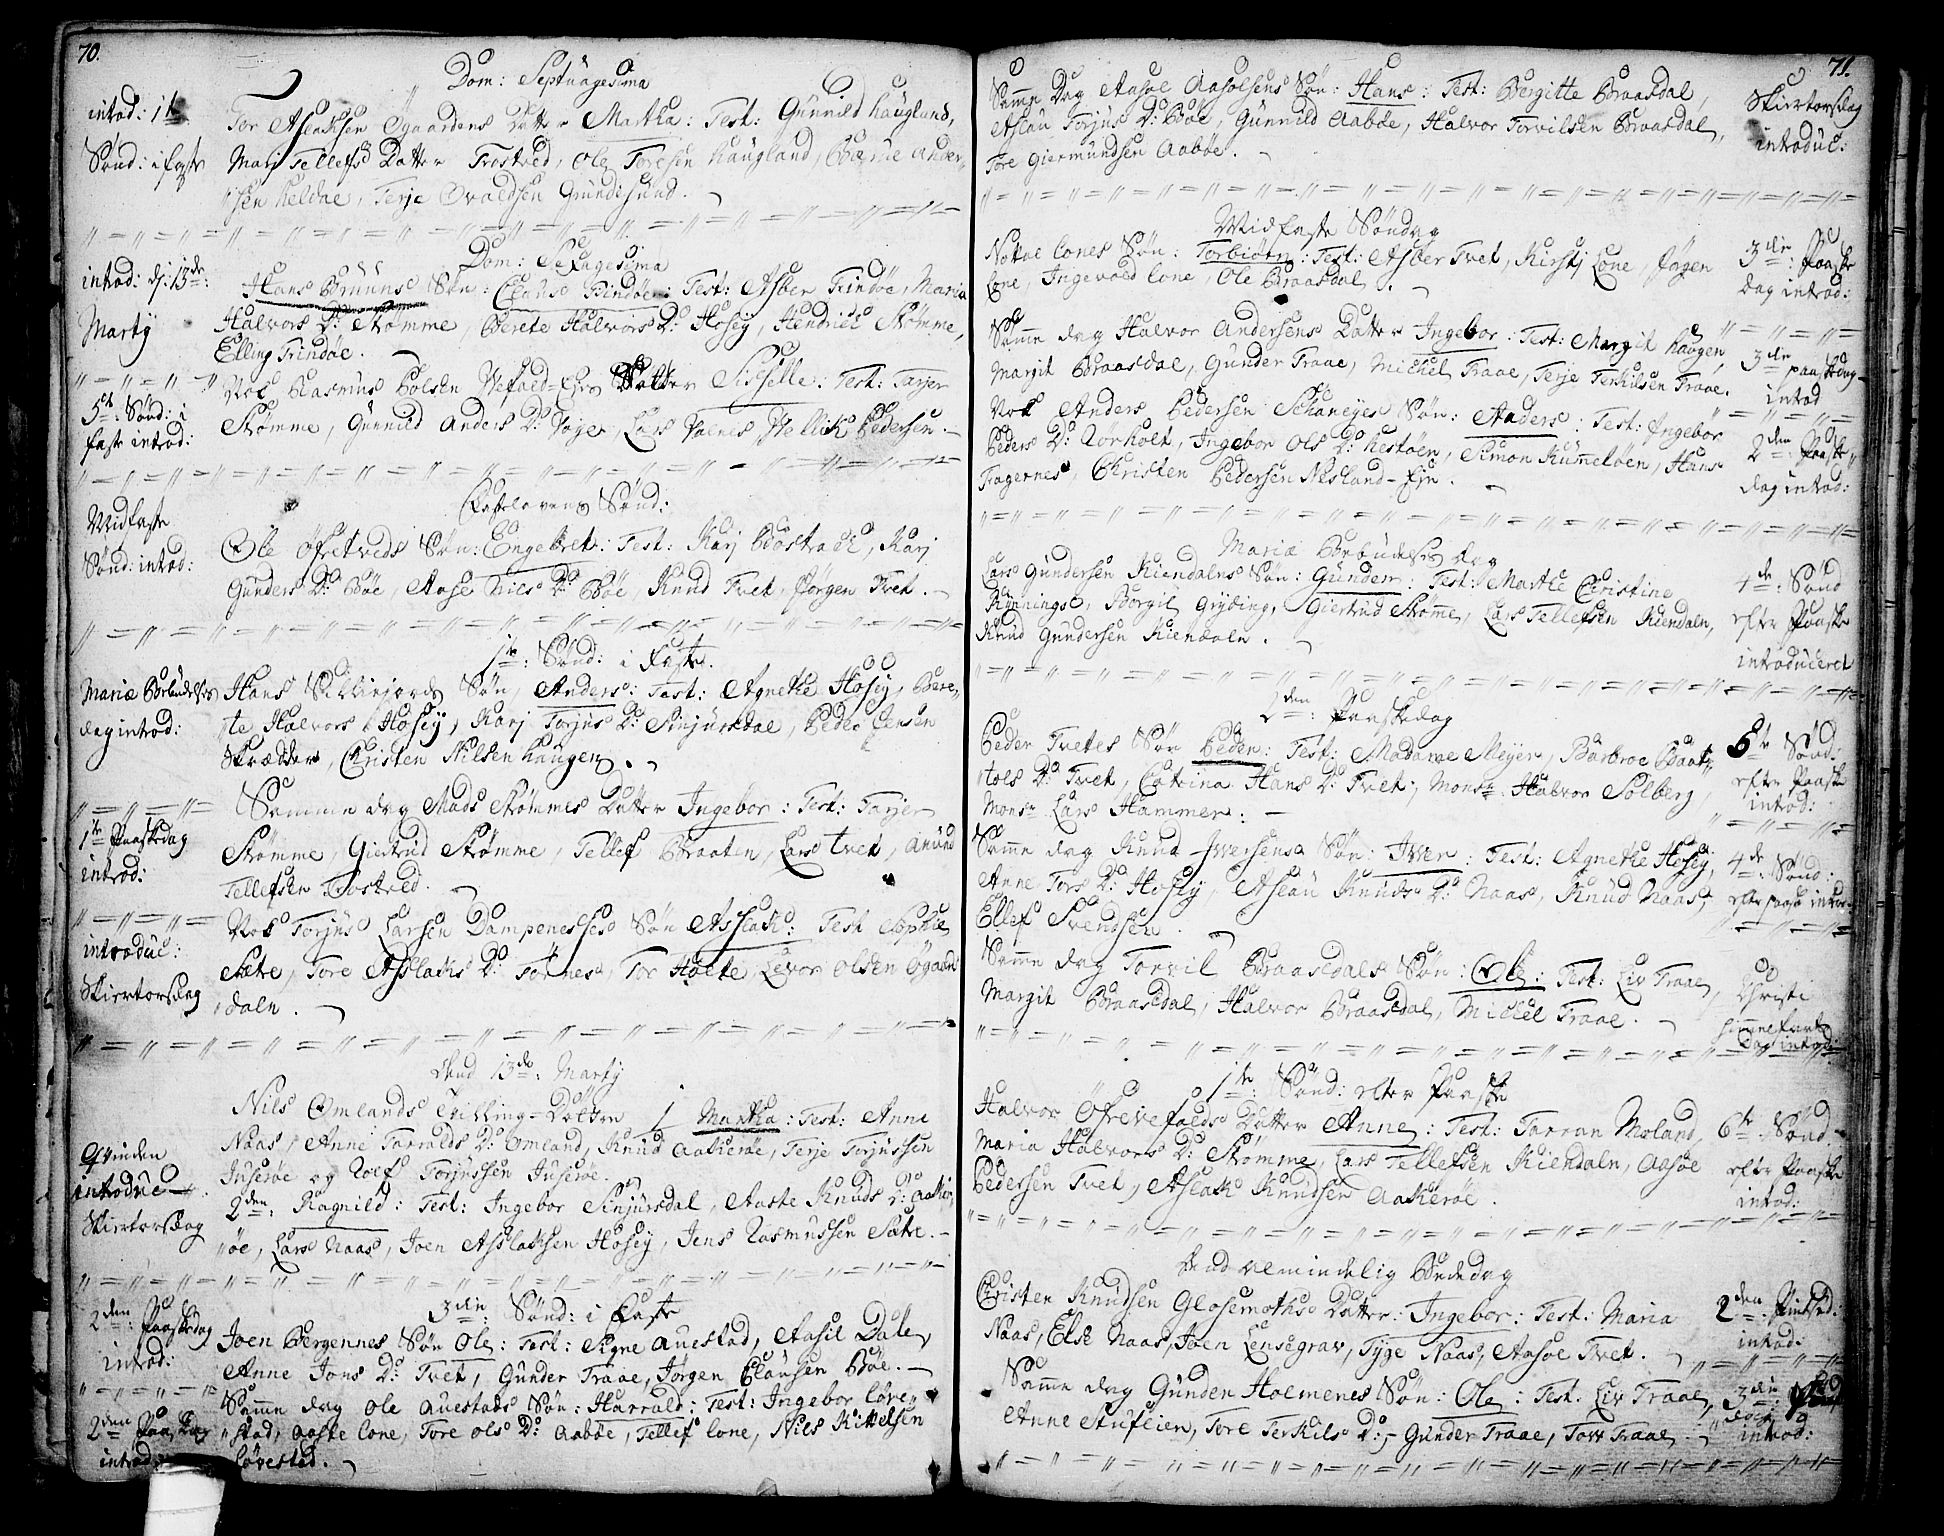 70.
Dom: Septuagesima
introd: 1te
Sønd: i faste
Tor Aslaksen Øgaardens Datter Martha: Test: Gunnild Haugland,
Mari Tellefs Datter Trostved, Ole Toresen Haugland, Bærne Ander-
sen Heldal, Terje Ovaldsen Gundesund.
Dom: Sexagesima
introd: d: 13de:
Marty
Hans Bruuns Søn: Claus Trindøe: Test: Asber Trindøe, Maria
Halvors D: Strømme, Berete Halvors D: Hosey, Hendrich Strømme,
Elling Trindøe.
5te Sønd: i
faste introd:
Nok Rasmus Bolsen Nefald-Eje Datter Siselle: Test: Tarjer
Strømme, Gunnild Anders D: Vager, Lars Valnes, Kellik Pedersen.
Fastelavens Sønd:
Midfaste
Sønd: introd:
Ole Ofretveds Søn: Engebret: Test: Karj Bøstrack, Karj
Gunders D: Bøe, Aase Nils D: Bøe, Knud Tvet, Jørgen Tvet.
1te: Sønd: i Faste.
Mariæ Bebudelses
dag introd:
Hans Skibbiejords Søn, Anders: Test: Agnethe Hosey, Bere-
te Halvors Hosey, Karj Torjus D: Sinjursdal, Peder Jensen
Skrædder, Christen Nilsen Haugen.
1te Paaskedag
introd:
Samme dag Mads Strømmes Datter Ingebor: Test: Tarjer
Strømme, Giertrud Strømme, Tellef Braaten, Lars Tvet, Anund
Tellefsen Trostved.
introduc:
Skiertorsdag
Nok Torjus Larsen Dampenesses Søn Asslak: Test Sophie
Sæte, Tore Asslaks D: Tornes, Tor Holte, Levor Olsen Øgaar-
daln.
Dend 13de: Marty
Qvinden
introduc
Skiertorsdag
Nils Omlands Tvilling-Døttre 1 Martha: Test: Anne
Naas, Anne Tarralds D: Omland, Knud Aakerøe, Terje Torjussen
Juserøe og Rolf Torjussen Juserøe.
2den: Ragnild: Test: Ingebor Sinjursdal, Aaste Knuds D: Aaker-
øe, Lars Naas, Joen Asslaksen Hosey, Jens Rasmussen Sæte.
3die: Sønd: i Faste
2den: Paaskedag
introd:
Joen Bergennes Søn Ole: Test: Signe Auestad, Aasil Dale,
Anne Jons D: Tvet, Gunder Traae, Jørgen Clausen Bøe.
2den Paaskedag
introd
Samme dag Ole Auestads Søn: Harrald: Test: Ingebor Løve-
stad, Aaste Lone, Tore Ols D: Aabøe, Tellef Lone, Nils Kittelsen
Løvestad.
71.
Samme Dag Aasøl Aasølsens Søn: Hans: Test: Bergitte Braasdal,
Aslau Torjus D: Bøe, Gunnild Aabøe, Halvor Torvilsen Braasdal,
Tore Giermundsen Aabøe.
Skiertorsdag
introduc:
Midfaste Søndag
Notvel Lones Søn: Torbiørn: Test: Asber Tvet, Kirstj Lone, Jøgen
Lone, Ingevald Lone, Ole Braasdal.
3die: Paaske
dag introd:
Samme dag Halvor Andersens Datter Ingebor: Test: Margit Haugen,
Margit Braasdal, Gunder Traae, Michel Traae, Terje Terkilsen Traae.
3die paaskedag
introd
Nok Anders Pedersen Schaneyes Søn: Anders: Test: Ingebor
Peders D: Rørholt, Ingebor Ols D: Kestøen, Simon Kummeløen, Hans
Fragernes, Christen Pedersen Nesland-Eje.
2den: Paaske
dag introd:
Mariæ Bebudelses Dag
Lars Gundersen Kiendalns Søn: Gunder: Test: Marthe Christine
Rønnings, Borgil Gryding, Giertrud Strømme, Lars Tellefsen Kiendaln,
Knud Gundersen Kiendaln.
4de: Sønd
efter Paaske
introduceret
2den: Paaskedag
Peder Tvetes Søn Peder: Test: Madame Meyer, Barbroe Baat-
stols D: Tvet, Catrina Hans D: Tvet, Monsr. Halvor Solberg,
Monsr Lars Hammer:
6te Sønd.
efter Paaske
introd:
Samme dag Knud Iversens Søn: Iver: Test: Agnethe Hosey,
Anne Tors D: Hosey, Aslau Knuds D: Naas, Knud Naas,
Ellef Svendsen.
4de: Sønd:
efter paaske introd:
Samme dag Torvil Braasdals Søn: Ole: Test: Liv Traae,
Margit Braasdal, Halvor Braasdal, Michel Traae.
Christi
himmelfarts
Dag introd:
1te: Sønd: efter Paaske
Halvor Ofrevefalds Datter Anne: Test: Tarran Moland,
Maria Halvors D: Strømme, Lars Tellefsen Kiendaln, Aasøe
Pedersen Tvet, Aslak Knudsen Aakerøe.
6te Sønd
efter Paaske
introd:
Dend almindelig Bededag
Christen Knudsen Glosemothes Datter: Ingebor: Test: Maria
Naas, Else Naas, Joen Lensegrav, Tyge Naas, Aasøe Tvet.
2den: Pintsed:
introd.
Samme dag Gunder Holmenes Søn: Ole: Test: Liv Traae,
Anne Aufleien, Tore Terkils D:, Gunder Traae, Tow Traae.
3die:
introd: